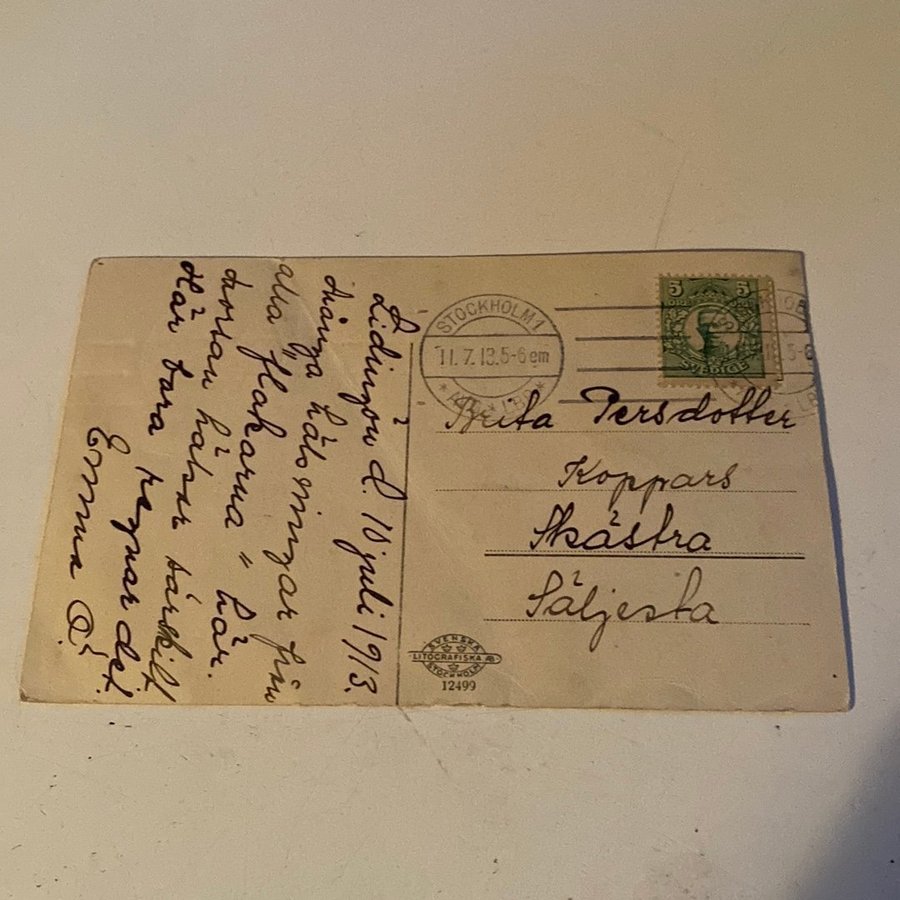 Lidingön d. 10 juli 1913.
Många hälsningar från
alla "flakarna" här.
Moster hälsar särskilt
Här bara regnar det.
Emma Ö.
STOCKHOLM 1
11.7.13.5-6 em
5 5
SVERIGE
Brita Persdotter
Koppars
Skästra
Säljesta
SVENSKA
LITOGRAFISKA AB
STOCKHOLM
12499